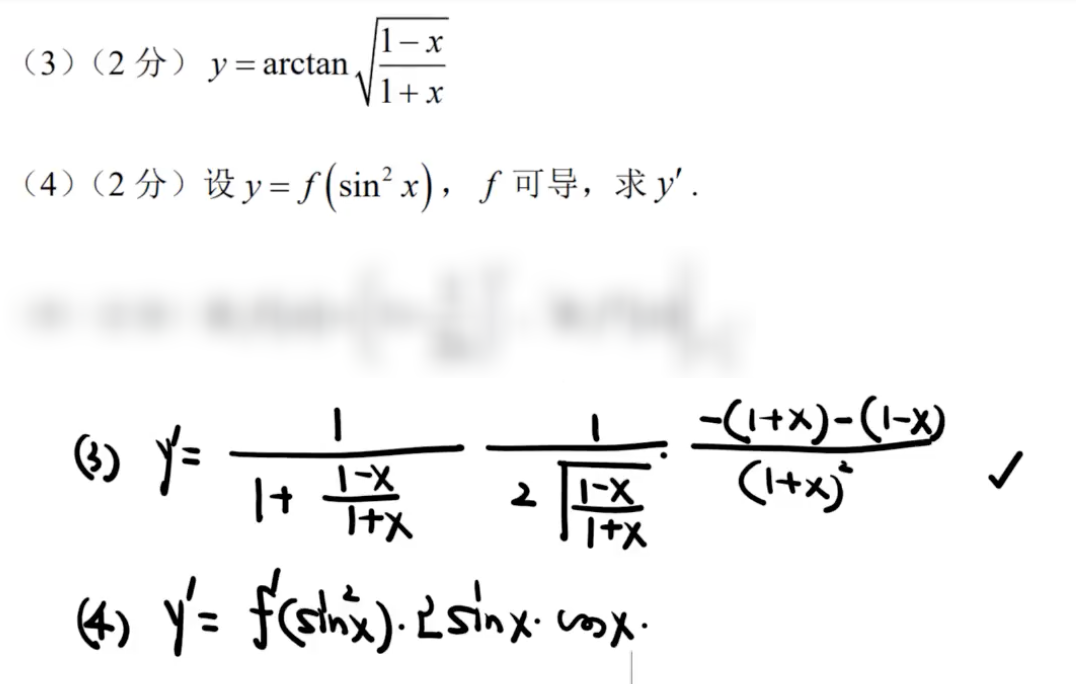 (3)(2分) y = arctan √((1−x)/(1+x))
(4)(2分) 设 y = f(sin² x), f 可导, 求 y′.
(3) y′ = 1/(1+(1−x)/(1+x)) 1/(2√((1−x)/(1+x))) · (−(1+x)−(1−x))/(1+x)² ✓
(4) y′ = f′(sin²x)·2sinx·cosx.